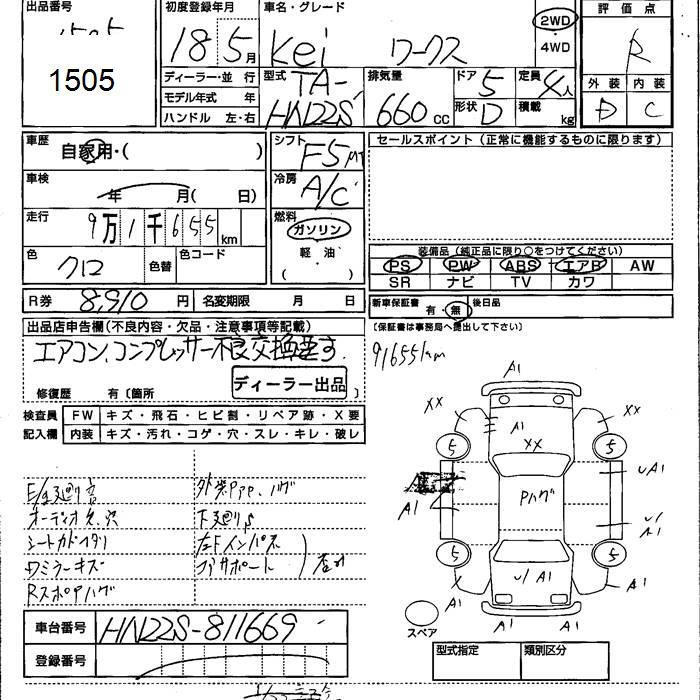 出品番号
1505
初度登録年月
18 5月
車名・グレード
Kei ワークス
2WD
・4WD
評価点
R
外装 内装
D C
ディーラー・並行
モデル年式 年
ハンドル 左・右
型式
TA-
HN22S
排気量
660 cc
ドア 5
形状 D
定員 4人
積載 kg
車歴
自家用・( )
車検
年 月( 日)
走行
9万1千655km
色
クロ
色替
色コード
シフト
F5MT
冷房
A/C
燃料
ガソリン
・
軽油
( )
セールスポイント(正常に機能するものに限ります)
装備品(純正品に限り○をつけてください)
PS PW ABS エアB AW
SR ナビ TV カワ
R券 8,910円
名変期限 月 日
新車保証書 有・無
後日品
(保証書は事務局へ提出して下さい)
出品店申告欄(不良内容・欠品・注意事項等記載)
エアコン.コンプレッサー不良交換要す.
91655km
修復歴 有〔箇所 〕
ディーラー出品
検査員
記入欄
FW キズ・飛石・ヒビ割・リペア跡・X要
内装 キズ・汚れ・コゲ・穴・スレ・キレ・破レ
E/g廻り音
外装
オーディオ欠.穴
下廻りS
左Fインパネ
コアサポート
Rスポアハゲ
A1
XX
XX
A1
XX
5
5
UA1
Pハゲ
A1
U/
A1
5
5
U/A1
X
A1
A1
A1
スペア
車台番号 HN22S-811669
登録番号
型式指定
類別区分